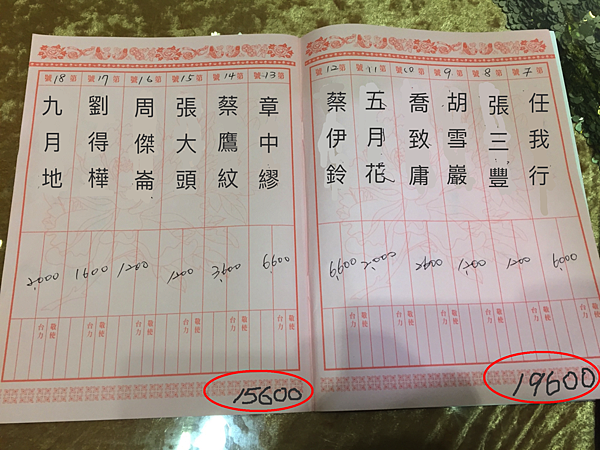 第7號
任我行
6000
第8號
張三豐
1200
第9號
胡雪巖
1200
敬使
台力
第10號
喬致庸
2600
敬使
台力
第11號
五月花
2000
敬使
台力
第12號
蔡伊鈴
6600
敬使
台力
19600
第13號
章中繆
6600
敬使
台力
第14號
蔡鷹紋
3600
敬使
台力
第15號
張大頭
1200
敬使
台力
第16號
周傑崙
1200
敬使
台力
第17號
劉得樺
1600
敬使
台力
第18號
九月地
2000
敬使
台力
15600